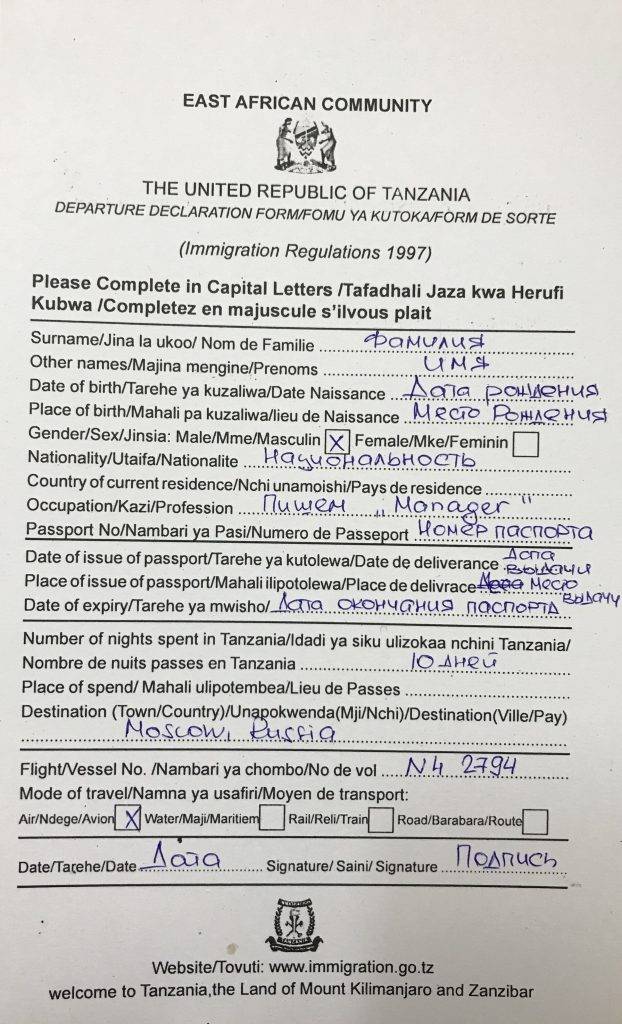 EAST AFRICAN COMMUNITY
THE UNITED REPUBLIC OF TANZANIA
DEPARTURE DECLARATION FORM/FOMU YA KUTOKA/FORM DE SORTE
(Immigration Regulations 1997)
Please Complete in Capital Letters /Tafadhali Jaza kwa Herufi
Kubwa /Completez en majuscule s'ilvous plait
Surname/Jina la ukoo/ Nom de Familie Фамилия
Other names/Majina mengine/Prenoms имя
Date of birth/Tarehe ya kuzaliwa/Date Naissance Дата рождения
Place of birth/Mahali pa kuzaliwa/lieu de Naissance Место Рождения
Gender/Sex/Jinsia: Male/Mme/Masculin X Female/Mke/Feminin
Nationality/Utaifa/Nationalite Национальность
Country of current residence/Nchi unamoishi/Pays de residence
Occupation/Kazi/Profession Пишем „Manager"
Passport No/Nambari ya Pasi/Numero de Passeport Номер паспорта
Date of issue of passport/Tarehe ya kutolewa/Date de deliverance Дата выдачи
Place of issue of passport/Mahali ilipotolewa/Place de delivrace Место выдачи
Date of expiry/Tarehe ya mwisho/ Дата окончания паспорта
Number of nights spent in Tanzania/Idadi ya siku ulizokaa nchini Tanzania/
Nombre de nuits passes en Tanzania 10 дней
Place of spend/ Mahali ulipotembea/Lieu de Passes
Destination (Town/Country)/Unapokwenda(Mji/Nchi)/Destination(Ville/Pay)
Moscow, Russia
Flight/Vessel No. /Nambari ya chombo/No de vol N4 2794
Mode of travel/Namna ya usafiri/Moyen de transport:
Air/Ndege/Avion X Water/Maji/Maritiem Rail/Reli/Train Road/Barabara/Route
Date/Tarehe/Date Дата Signature/ Saini/ Signature Подпись
Website/Tovuti: www.immigration.go.tz
welcome to Tanzania,the Land of Mount Kilimanjaro and Zanzibar